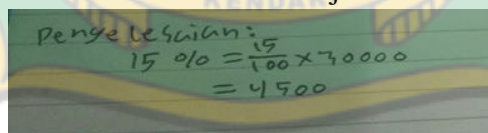 KENDARI
Penyelesaian:
15 % = 15/100 × 30000
= 4500